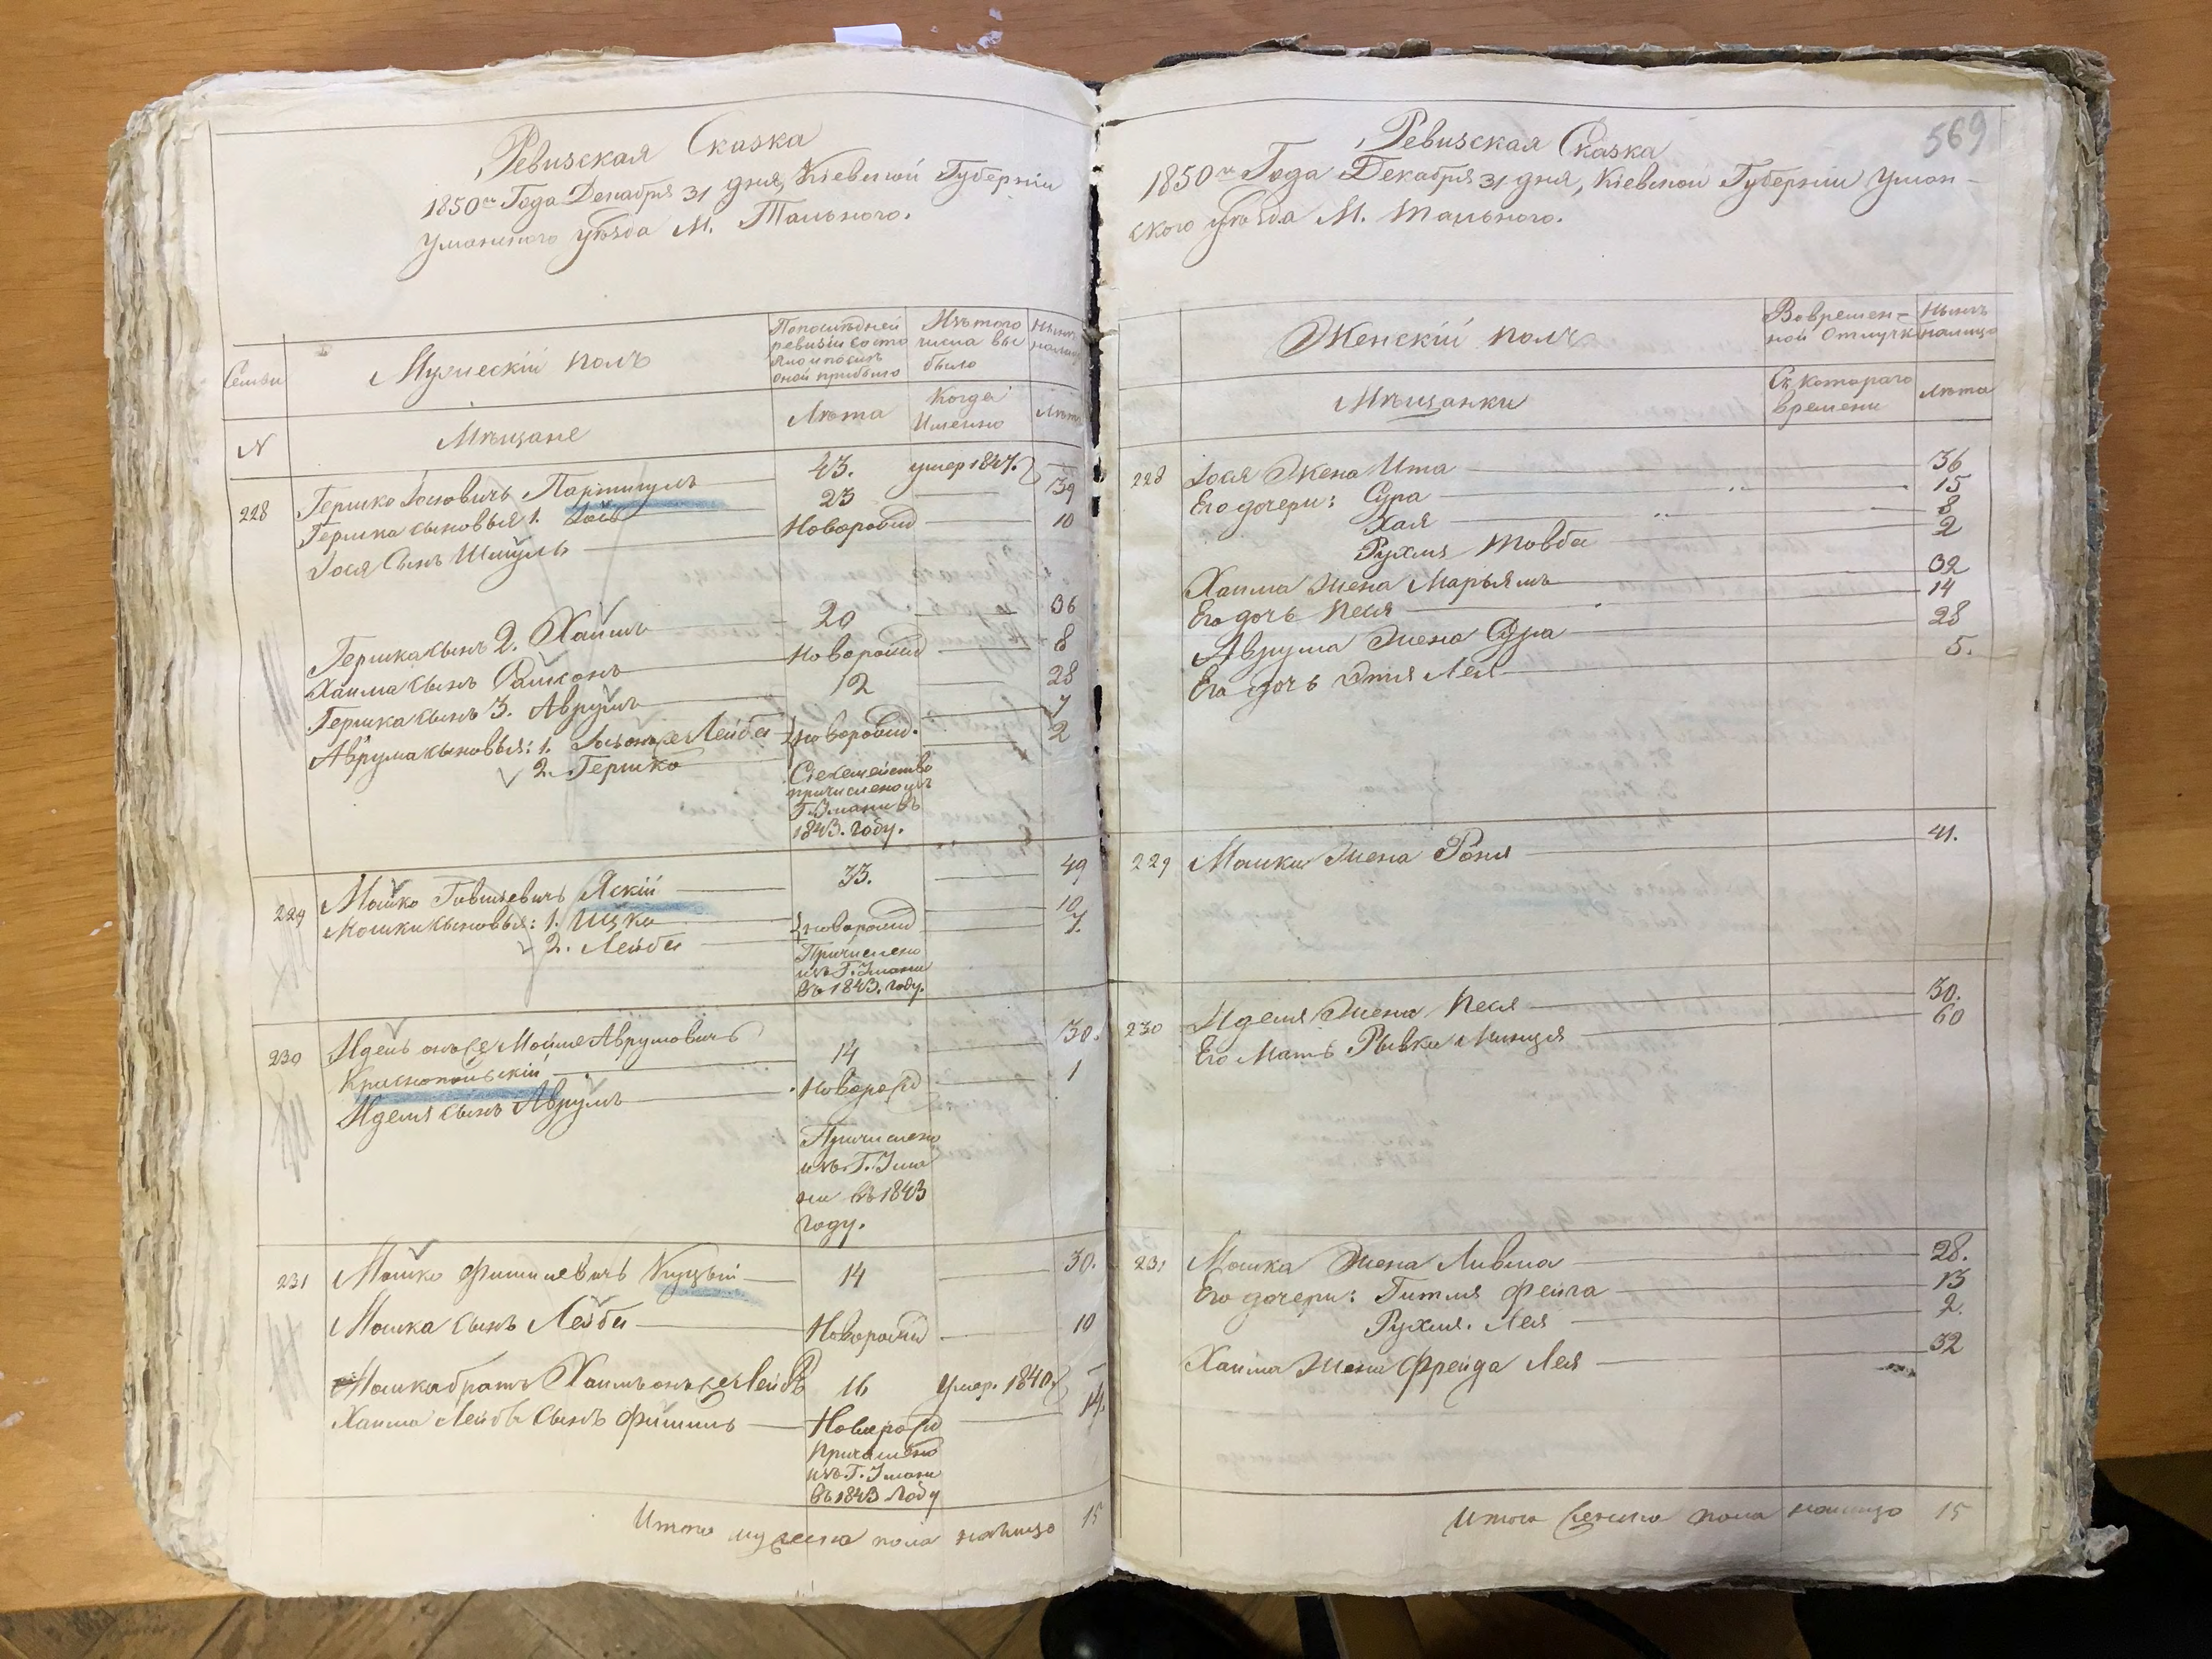 Ревизская Сказка
1850го Года Декабря 31 дня, Кіевской Губерніи
Уманского уѣзда М. Тального.
Семьи
Мужескій полъ
По послѣдней
ревизіи состо
яло и послѣ
оной прибыло
Изъ того
числа вы
было
Нынѣ
налицо
N
Мѣщане
Лѣта
Когда
Именно
Лѣта
228 Гершко Іосіовичъ 43. умер 1847. —
Гершка сыновья 1. Іось 23 — 39
Іося Сынъ Шмуль — Новорожд — 10
Гершка сынъ 2. Хаимъ 20 — 36
Хаима сынъ — Новорожд — 8
Гершка сынъ 3. Аврумъ 12 — 28
Аврума сыновья: 1. Лейба — новорожд. — 7
2. Гершко — 2
Сіе семейство
причислено изъ
Г. Умани въ
1843. году.
229 Мошко Яскій — 33. — 49
Мошки сыновья: 1. Ицко — новорожд — 10
2. Лейба — 7.
Причислено
изъ Г. Умани
въ 1843. году.
230 Идель онъ же Мойше Аврумовичъ
Краснопольскій — 14 — 30.
Иделя сынъ Аврумъ — Новорожд — 1
Причислено
изъ Г. Ума
ни въ 1843
году.
231 Мошко Фишилевичъ Куцый — 14 — 30.
Мошка сынъ Лейба — Новорожд — 10
Мошка братъ Хаимъ онъ же Лейбъ 16 Умер. 1840. —
Хаима Лейбы Сынъ Фишель — Новорожд — 14.
Причислено
изъ Г. Умани
въ 1843 году
Итого мужеска пола налицо 15
569
Ревизская Сказка
1850го Года Декабря 31 дня, Кіевской Губерніи Уман-
ского уѣзда М. Тального.
Женскій полъ
Во времен-
ной отлучкѣ
Нынѣ
налицо
Мѣщанки
Съ котораго
времени
Лѣта
228 Іося Жена Ита — 36
Его дочери: Сура — 15
Хая — 8
Рухля Товба — 2
Хаима жена Марьямъ — 32
Его дочь Песя — 14
Аврума жена Сура — 28
Его дочь Этя Лея — 5.
229 Мошки жена Роня — 41.
230 Иделя Жена Песя — 30.
Его Мать Рывка Минця — 60
231 Мошка Жена Ливша — 28.
Его дочери: Гитля Фейга — 13
Рухля. Лея — 2.
Хаима жена Фрейда Лея — 32
Итого женска пола налицо 15